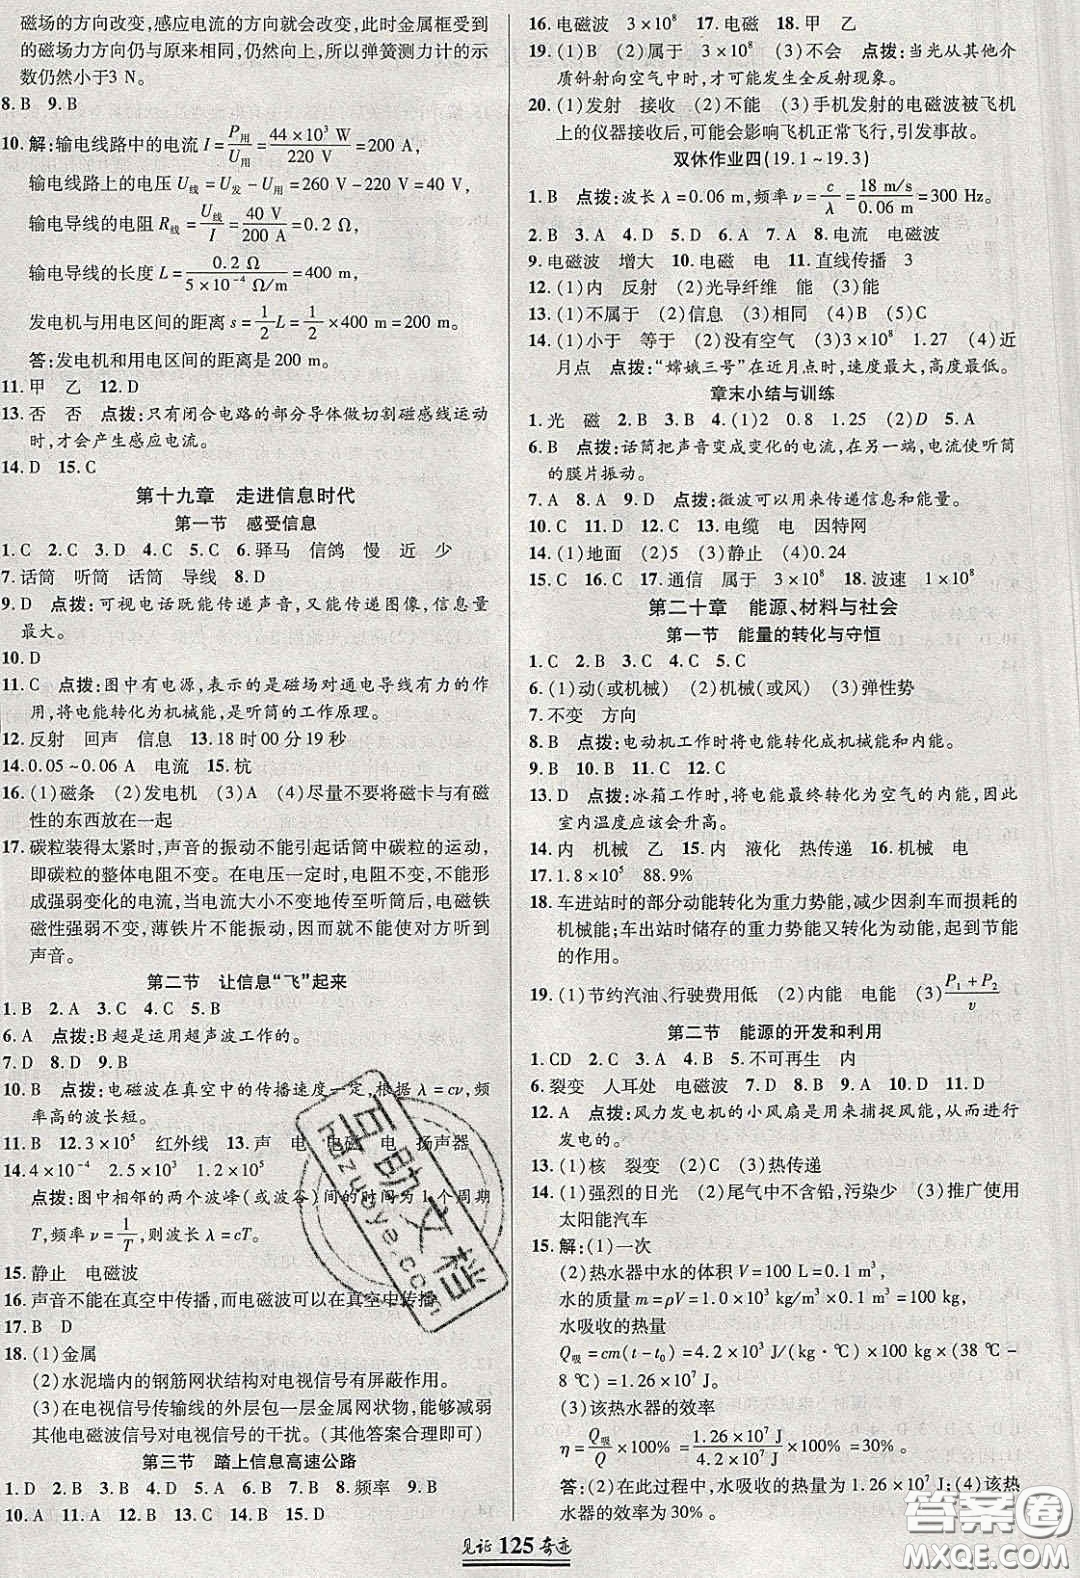 磁场的方向改变,感应电流的方向就会改变,此时金属框受到
的磁场力方向仍与原来相同,仍然向上,所以弹簧测力计的示
数仍然小于3 N。
8. B  9. B
10. 解:输电线路中的电流 I = P用/U用 = 44×10³ W/220 V = 200 A,
输电线路上的电压 U线 = U发 − U用 = 260 V − 220 V = 40 V,
输电导线的电阻 R线 = U线/I = 40 V/200 A = 0.2 Ω,
输电导线的长度 L = 0.2 Ω/5×10⁻⁴ Ω/m = 400 m,
发电机与用电区间的距离 s = 1/2 L = 1/2 × 400 m = 200 m。
答:发电机和用电区间的距离是 200 m。
11. 甲 乙  12. D
13. 否 否 点拨:只有闭合电路的部分导体做切割磁感线运动
时,才会产生感应电流。
14. D  15. C
第十九章 走进信息时代
第一节 感受信息
1. C  2. C  3. D  4. C  5. C  6. 驿马 信鸽 慢 近 少
7. 话筒 听筒 话筒 导线  8. D
9. D 点拨:可视电话既能传递声音,又能传递图像,信息量
最大。
10. D
11. C 点拨:图中有电源,表示的是磁场对通电导线有力的作
用,将电能转化为机械能,是听筒的工作原理。
12. 反射 回声 信息  13. 18时00分19秒
14. 0.05~0.06 A 电流  15. 杭
16. (1)磁条 (2)发电机 (3)A (4)尽量不要将磁卡与有磁
性的东西放在一起
17. 碳粒装得太紧时,声音的振动不能引起话筒中碳粒的运动,
即碳粒的整体电阻不变。在电压一定时,电阻不变,不能形
成强弱变化的电流,当电流大小不变地传至听筒后,电磁铁
磁性强弱不变,薄铁片不能振动,因而就不能使对方听到
声音。
第二节 让信息“飞”起来
1. B  2. A  3. C  4. C  5. B
6. A 点拨:B超是运用超声波工作的。
7. D  8. D  9. B
10. B 点拨:电磁波在真空中的传播速度一定,根据 λ=cν,频
率高的波长短。
11. B  12. 3×10⁵ 红外线  13. 声 电 电磁 电 扬声器
14. 4×10⁻⁴  2.5×10³  1.2×10⁵
点拨:图中相邻的两个波峰(或波谷)间的时间为1个周期
T,频率 ν = 1/T,则波速 λ = cT。
15. 静止 电磁波
16. 声音不能在真空中传播,而电磁波可以在真空中传播
17. B D
18. (1)金属
(2)水泥墙内的钢筋网状结构对电视信号有屏蔽作用。
(3)在电视信号传输线的外层包一层金属网状物,能够减弱
其他电磁波信号对电视信号的干扰。(其他答案合理即可)
第三节 踏上信息高速公路
1. D  2. D  3. B  4. D  5. C  6. D  7. A  8. 频率  9. C
10. A  11. A  12. C  13. C  14. D  15. D
16. 电磁波 3×10⁸  17. 电磁  18. 甲 乙
19. (1)B (2)属于 3×10⁸ (3)不会 点拨:当光从其他介
质斜射向空气中时,才可能发生全反射现象。
20. (1)发射 接收 (2)不能 (3)手机发射的电磁波被飞机
上的仪器接收后,可能会影响飞机正常飞行,引发事故。
双休作业四(19.1~19.3)
1. B 点拨:波长 λ=0.06 m,频率 ν = c/λ = 18 m/s/0.06 m = 300 Hz。
2. B  3. A  4. D  5. D  6. A  7. A  8. 电流 电磁波
9. 电磁波 增大  10. 电磁 电  11. 直线传播 3
12. (1)内 反射 (2)光导纤维 能 (3)能
13. (1)不属于 (2)信息 (3)相同 (4)B (5)C
14. (1)小于 等于 (2)没有空气 (3)3×10⁸ 1.27 (4)近
月点 点拨:“嫦娥三号”在近月点时,速度最大、高度最低。
章末小结与训练
1. 光 磁  2. B  3. B  4. (1)2 0.8 1.25 (2)D  5. A
6. B 点拨:话筒把声音变成变化的电流,在另一端,电流使听筒
的膜片振动。
7. A  8. A  9. D 点拨:微波可以用来传递信息和能量。
10. C  11. D  12. C  13. 电缆 电 因特网
14. (1)地面 (2)5 (3)静止 (4)0.24
15. C  16. C  17. 通信 属于 3×10⁸  18. 波速 1×10⁸
第二十章 能源、材料与社会
第一节 能量的转化与守恒
1. C  2. B  3. C  4. C  5. C
6. (1)动(或机械) (2)机械(或风) (3)弹性势
7. 不变 方向
8. B 点拨:电动机工作时将电能转化成机械能和内能。
9. B  10. B  11. C  12. C
13. D 点拨:冰箱工作时,将电能最终转化为空气的内能,因此
室内温度应该会升高。
14. 内 机械 乙  15. 内 液化 热传递  16. 机械 电
17. 1.8×10⁵ 88.9%
18. 车进站时的部分动能转化为重力势能,减少因刹车而损耗的
机械能;车出站时储存的重力势能又转化为动能,起到节能
的作用。
19. (1)节约汽油、行驶费用低 (2)内能 电能 (3)P₁+P₂/v
第二节 能源的开发和利用
1. CD  2. C  3. A  4. B  5. 不可再生 内
6. 裂变 人耳处 电磁波  7. D  8. D  9. D  10. D  11. D
12. A 点拨:风力发电机的小风扇是用来捕捉风能,从而进行
发电的。
13. (1)核 裂变 (2)D (3)热传递
14. (1)强烈的日光 (2)尾气中不含铅,污染少 (3)推广使用
太阳能汽车
15. 解:(1)一次
(2)热水器中水的体积 V = 100 L = 0.1 m³,
水的质量 m = ρV = 1.0×10³ kg/m³×0.1 m³ = 100 kg,
水吸收的热量
Q吸 = cm(t−t₀) = 4.2×10³ J/(kg·℃)×100 kg×(38 ℃−
8 ℃) = 1.26×10⁷ J。
(3)该热水器的效率
η = Q吸/Q ×100% = 1.26×10⁷ J/4.2×10⁷ J ×100% = 30%。
答:(2)在此过程中,水吸收的热量为 1.26×10⁷ J;(4)该热
水器的效率为30%。
见证 125 奇迹
互助文档
Hzuoye.com
答案圈
MXQE.COM